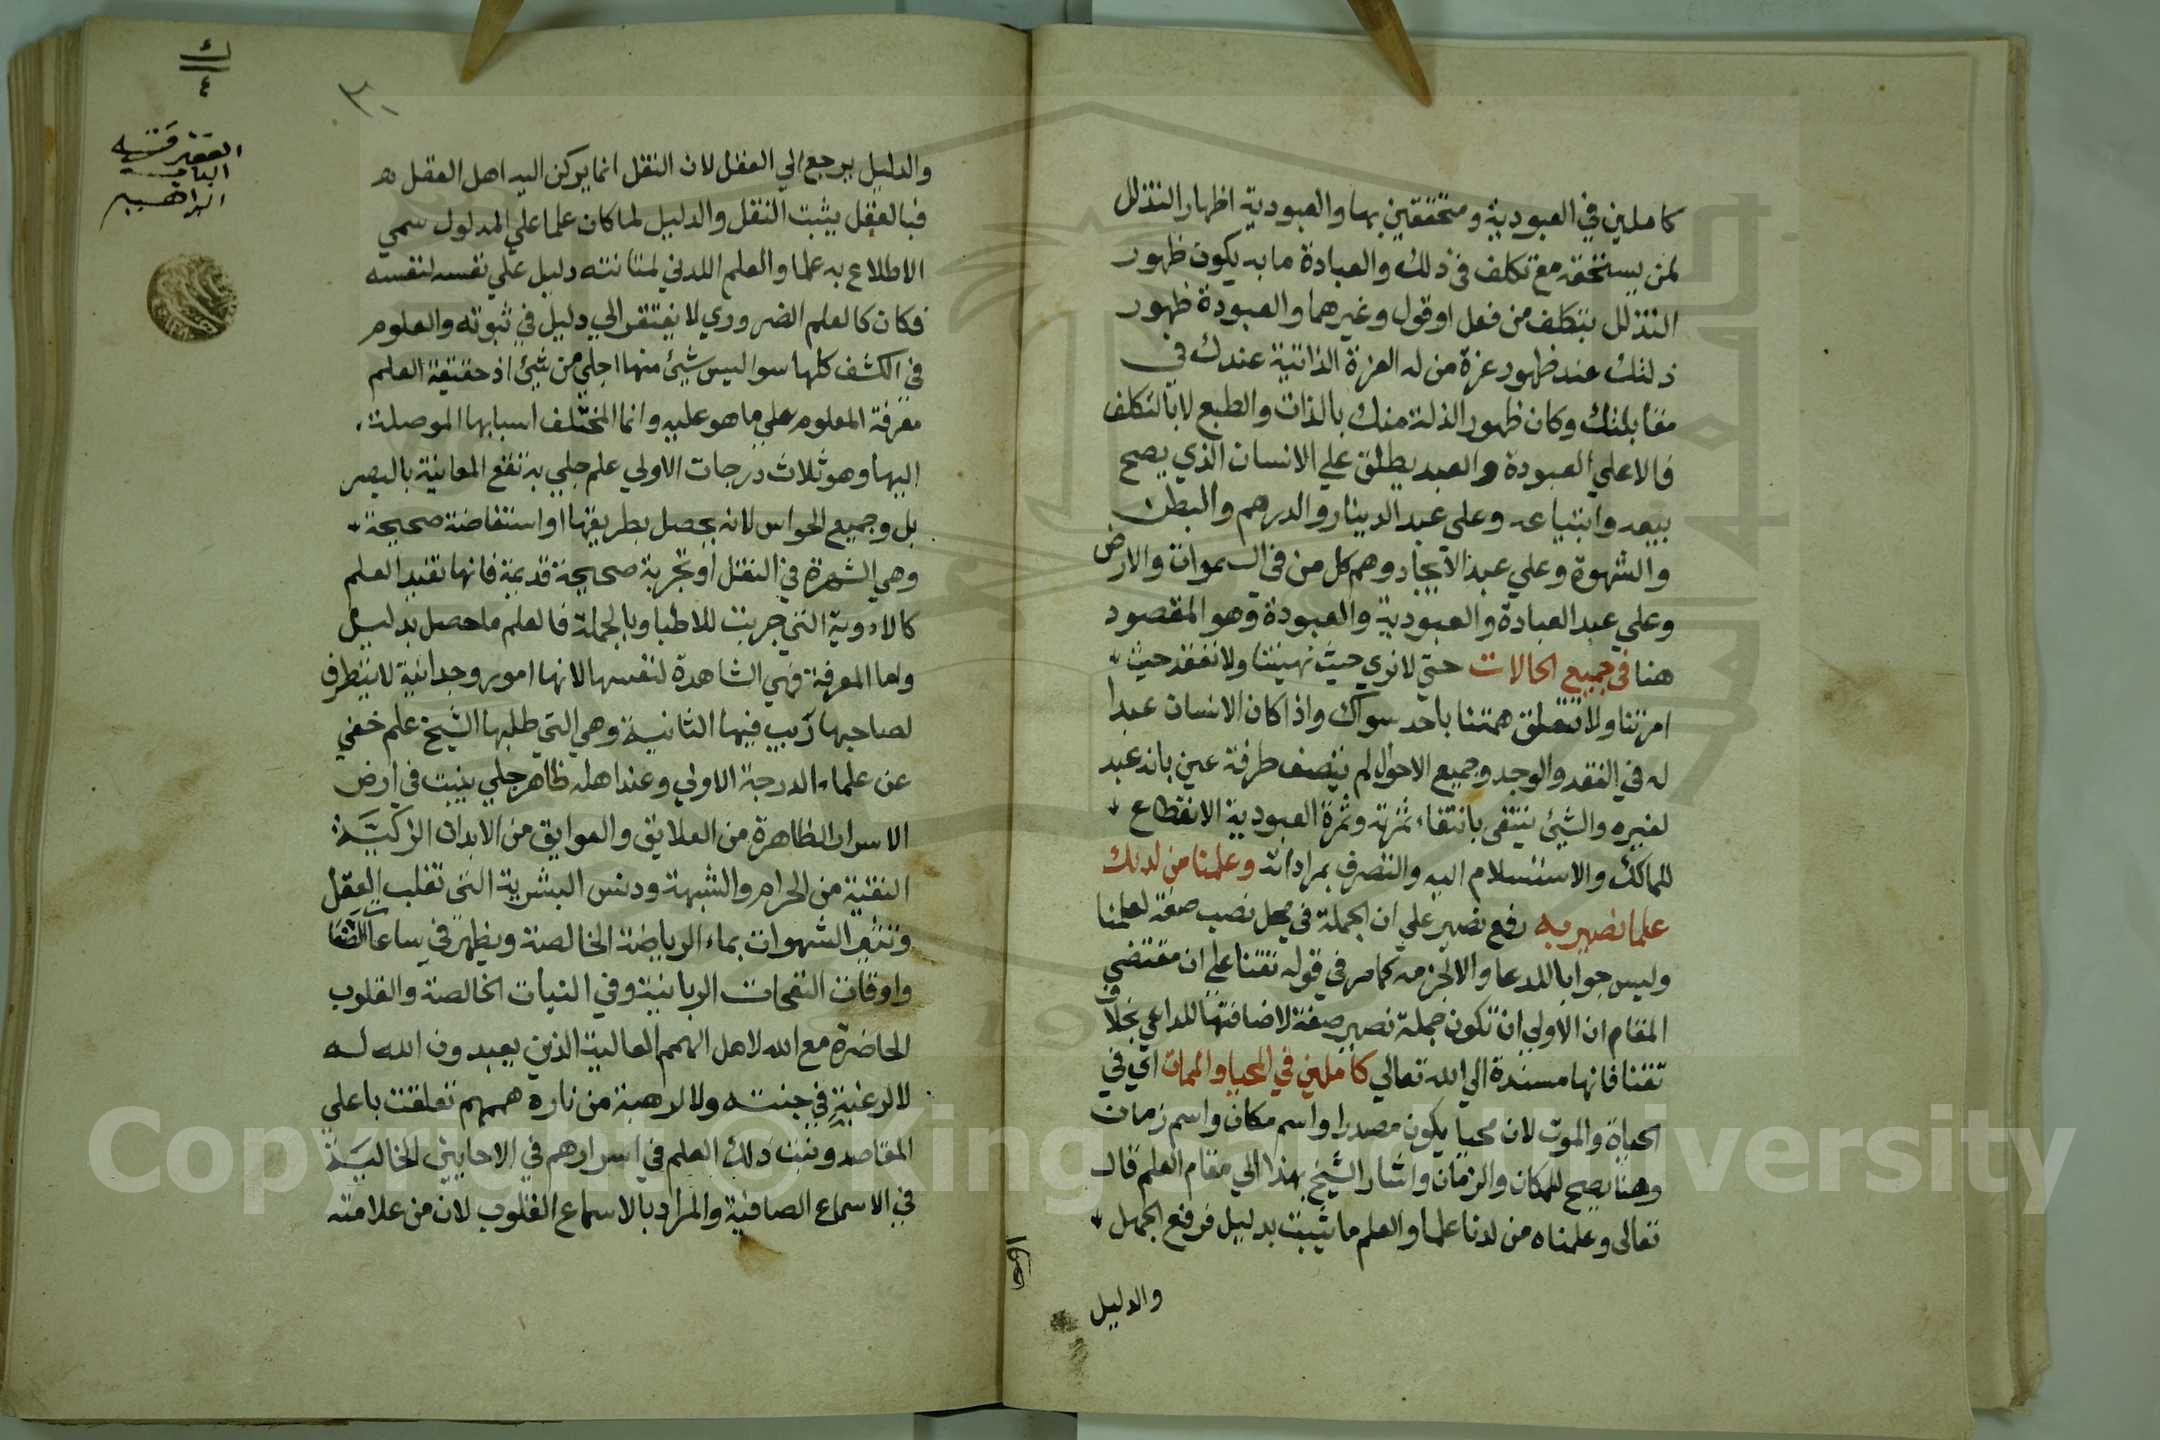 كاملين في العبودية ومتحققين بها والعبودية اظهار التذلل
لمن يستحقه مع تكلف في ذلك والعبادة ما به يكون ظهور
التذلل بتكلف من فعل او قول وغيرهما والعبودة ظهور
ذلتك عند ظهور عزة من له العزة الذاتية عندك في
مقابلتك وكان ظهور الذلة منك بالذات والطبع لا بالتكلف
فالاعلي العبودة والعبد يطلق علي الانسان الذي يصح
بيعه وابتياعه وعلي عبد الدينار والدرهم والبطن
والشهوة وعلي عبد الايجاد وهم كل من في السموات والارض
وعلي عبد العبادة والعبودية والعبودة وهو المقصود
هنا في جميع الحالات حتي لا نري حيث نهيتنا ولا نفقد حيث
امرتنا ولا تتعلق همتنا باحد سواك واذا كان الانسان عبدا
له في الفقد والوجد وجميع الاحوال لم يتصف طرفة عين بانه عبد
لغيره والشيئ ينتفي بانتفاء ثمرته وثمرة العبودية الانقطاع
للمالك والاستسلام اليه والتصرف بمراداته وعلمنا من لدنك
علما نصير به رفع نصير علي ان الجملة في محل نصب صفة لعلمنا
وليس جوابا للدعا والا لجزمه كما مر في قوله تقتنا علي ان مقتضي
المقام ان الاولي ان تكون جملة نصير صفة لاضافتها للداعي بخلاف
تقتنا فانها مسندة الي الله تعالي كاملين في المحيا والممات اي في
الحياة والموت لان محيا يكون مصدرا واسم مكان واسم زمان
وهنا يصح للمكان والزمان واشار الشيخ بهذا الي مقام العلم قال
تعالي وعلمناه من لدنا علما والعلم ما يثبت بدليل فرفع الجهل
والدليل
٣٠
والدليل يرجع الي العقل لان النقل انما يركن اليه اهل العقل
فبالعقل يثبت النقل والدليل لما كان علما علي المدلول سمي
الاطلاع به علما والعلم اللدني لمتانته دليل علي نفسه لنفسه
فكان كالعلم الضروري لا يفتقر الي دليل في ثبوته والعلوم
في الكشف كلها سوا ليس شيئ منها اجلي من شيئ اذ حقيقة العلم
معرفة المعلوم علي ما هو عليه وانما اختلف اسبابها الموصلة
اليها وهو ثلاث درجات الاولي علم جلي به تقع المعاينة بالبصر
بل وجميع الحواس لانه يحصل بطريقها او استفاضة صحيحة
وهي الشهرة في النقل او تجربة صحيحة قديمة فانها تفيد العلم
كالادوية التي جربت للاطبا وبالجملة فالعلم ما حصل بدليل
واما المعرفة فهي الشاهدة لنفسها لانها امور وجدانية لا يتطرف
لصاحبها ريب فيها الثانية وهي التي طلبها الشيخ علم خفي
عن علماء الدرجة الاولي وعند اهله ظاهر جلي ينبت في ارض
الاسرار الظاهرة من العلايق والعوايق من الابدان الزكية
النقية من الحرام والشبهة ودنس البشرية التي تغلب العقل
وتثير الشهوات بماء الرياضة الخالصة ويظهر في ساعات
واوقات النفحات الربانية وفي النيات الخالصة والقلوب
الحاضرة مع الله لاهل الهمم العالية الذين يعبدون الله له
لا لرغبة في جنته ولا لرهبة من ناره هممهم تعلقت باعلي
المقاصد ونبت ذلك العلم في اسرارهم في الاحايين الخالية
في الاسماع الصافية والمراد بالاسماع القلوب لان من علامته
Copyright © King Saud University